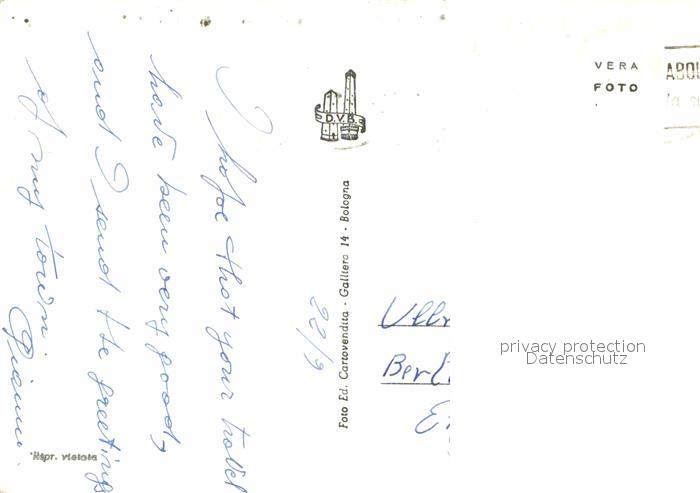 I hope that your travel
have been very good,
and I send the greetings
of my town.
Gianni.
22/9
D.V.B.
Foto Ed. Cartovendita - Galliera 14 - Bologna
Ripr. vietata
VERA
FOTO
privacy protection
Datenschutz